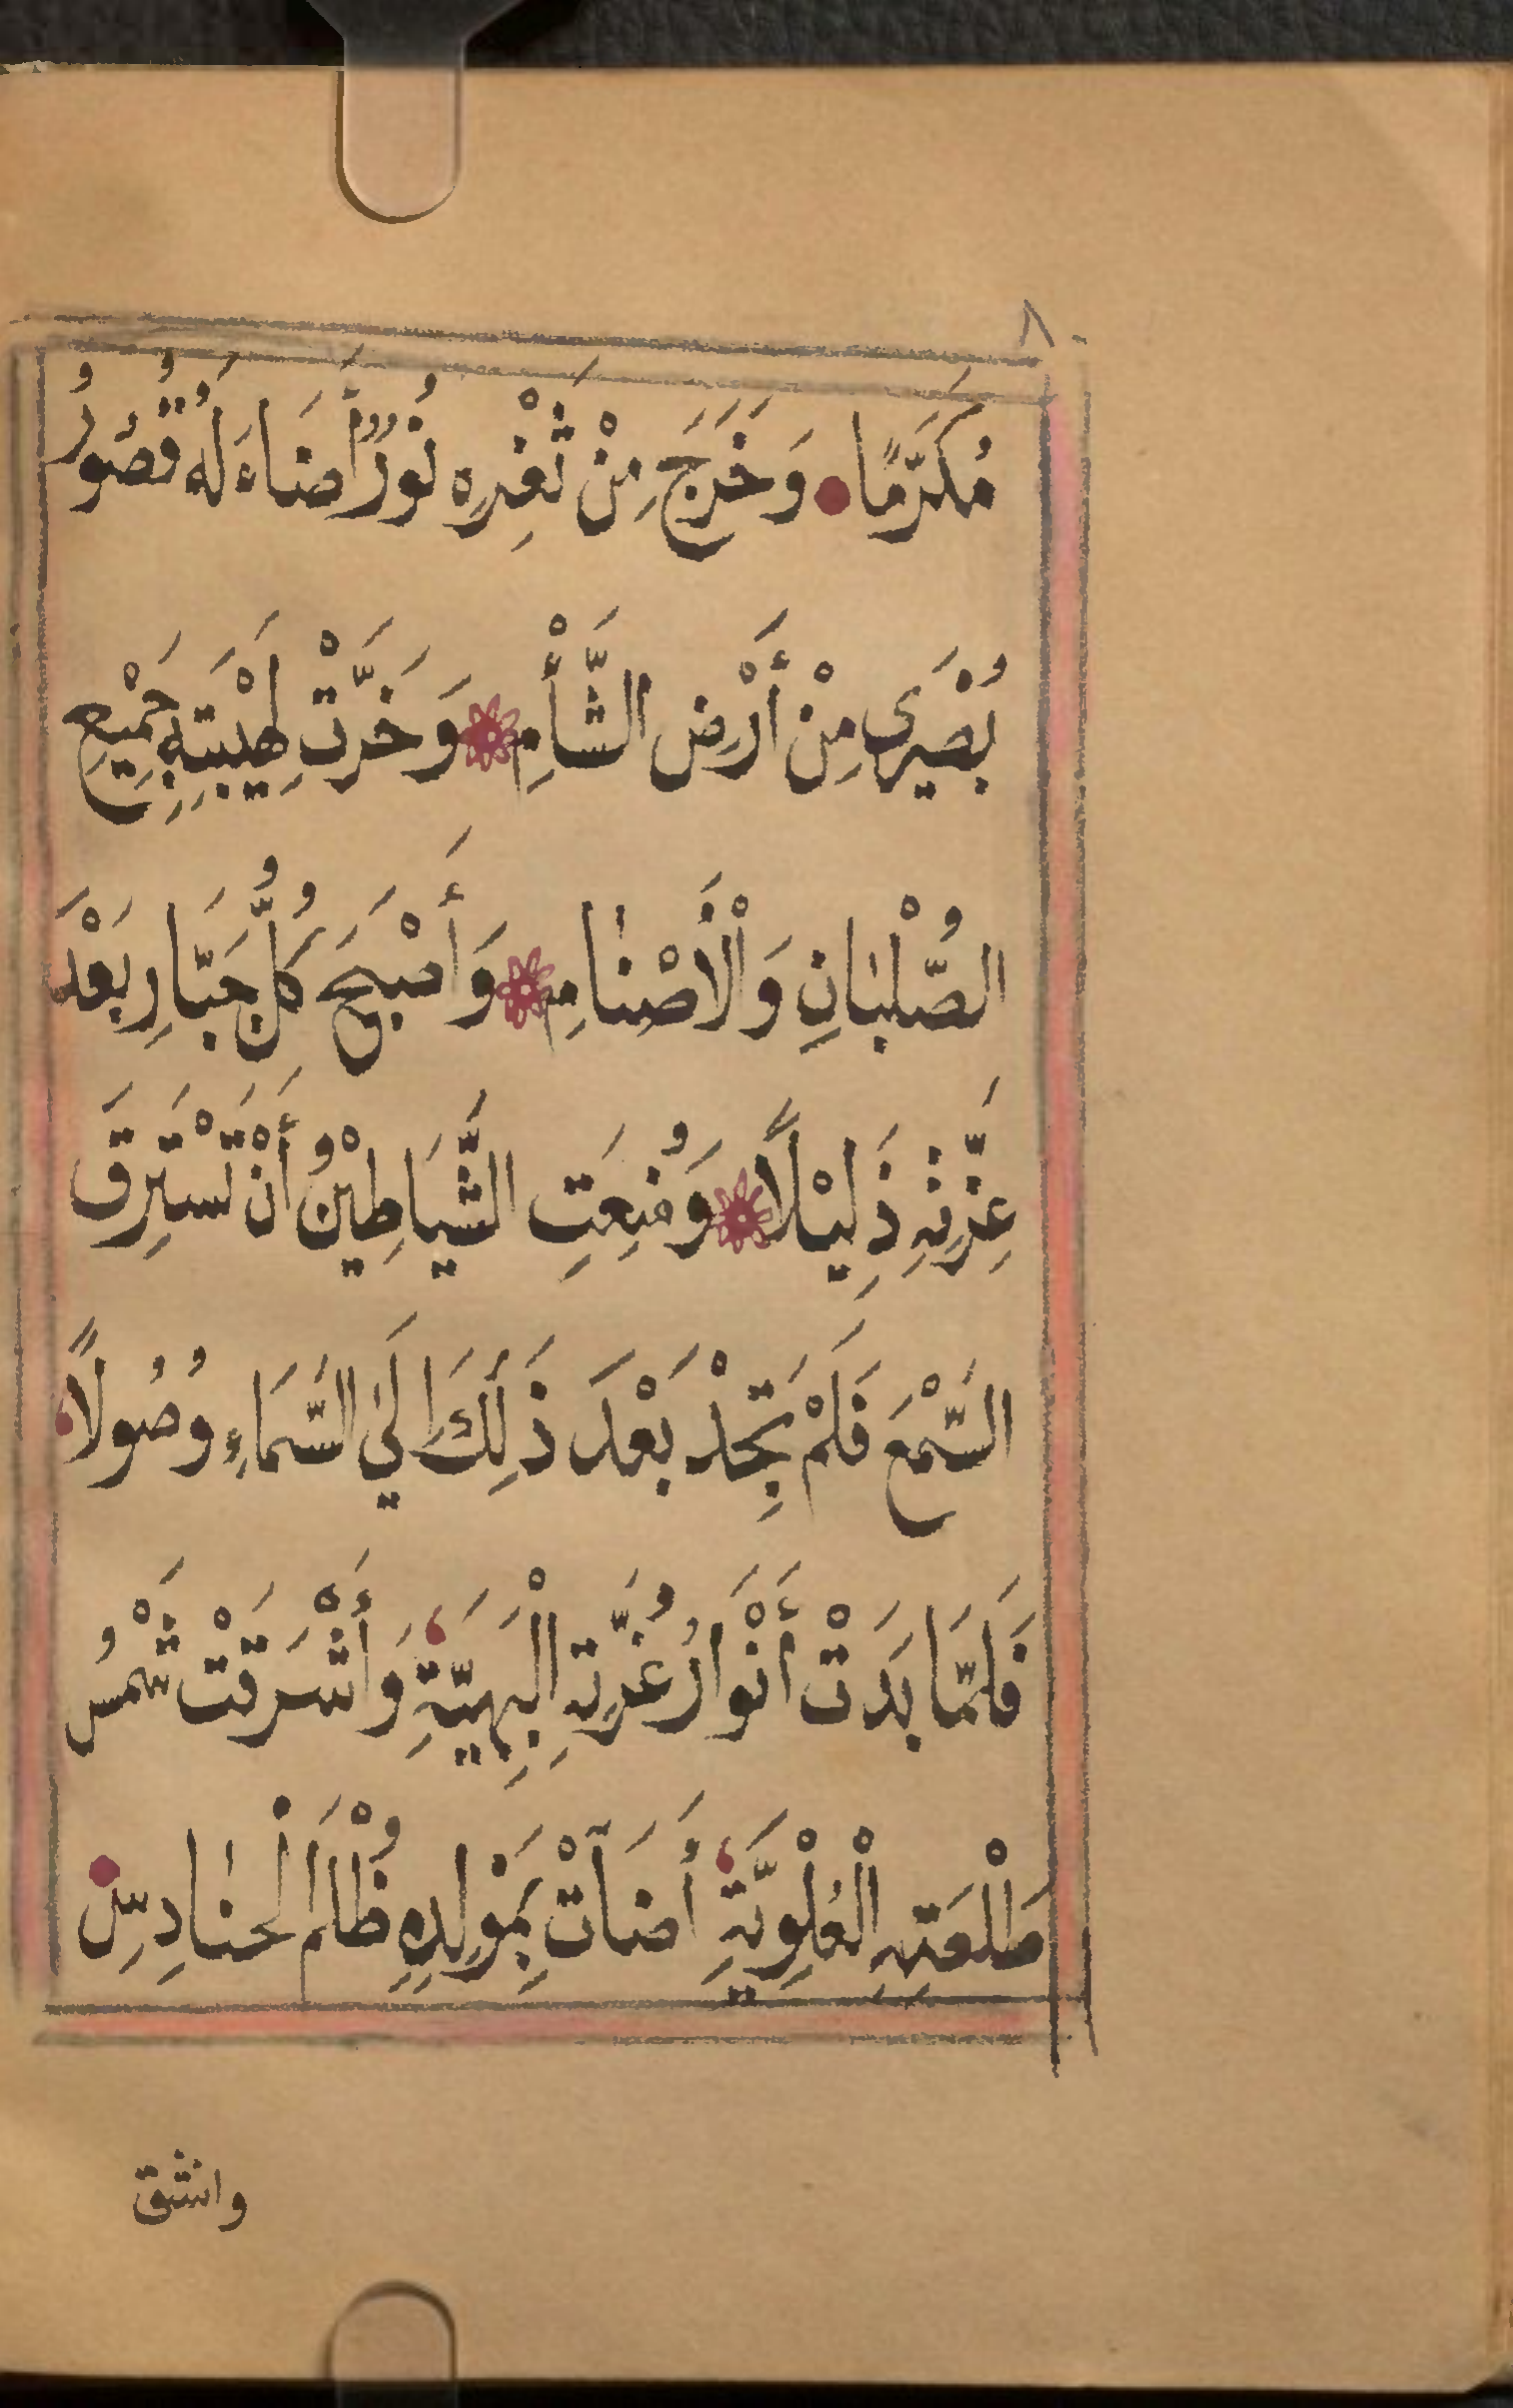 ٨٠
مُكَرَّمًا وَخَرَجَ مِنْ ثَغْرِهِ نُوْرٌ أَضَاءَ لَهُ قُصُوْرُ
بُصْرَي مِنْ أَرْضِ الشَّأْمِ وَخَرَّتْ لِهَيْبَتِهِ جَمِيْعِ
الصُّلْبَانِ وَالْأَصْنَامِ وَأَصْبَحَ كُلُّ جَبَّارٍ بَعْدَ
عِزَّتِهِ ذَلِيْلًا وَمُنِعَتِ الشَّيَاطِيْنُ أَنْ تَسْتَرِقَ
السَّمْعَ فَلَمْ تَجِدْ بَعْدَ ذَلِكَ إِلَيَ السَّمَاءِ وُصُولًا
فَلَمَّا بَدَتْ أَنْوَارُ غُرَّتِهِ الْبَهِيَّةِ وَأَشْرَقَتْ شَمْسُ
طَلْعَتِهِ الْعُلْوِيَّةِ أَضَآتْ بِمَوْلِدِهِ ظُلْمَ الْحَنَادِسِّ
وانشق